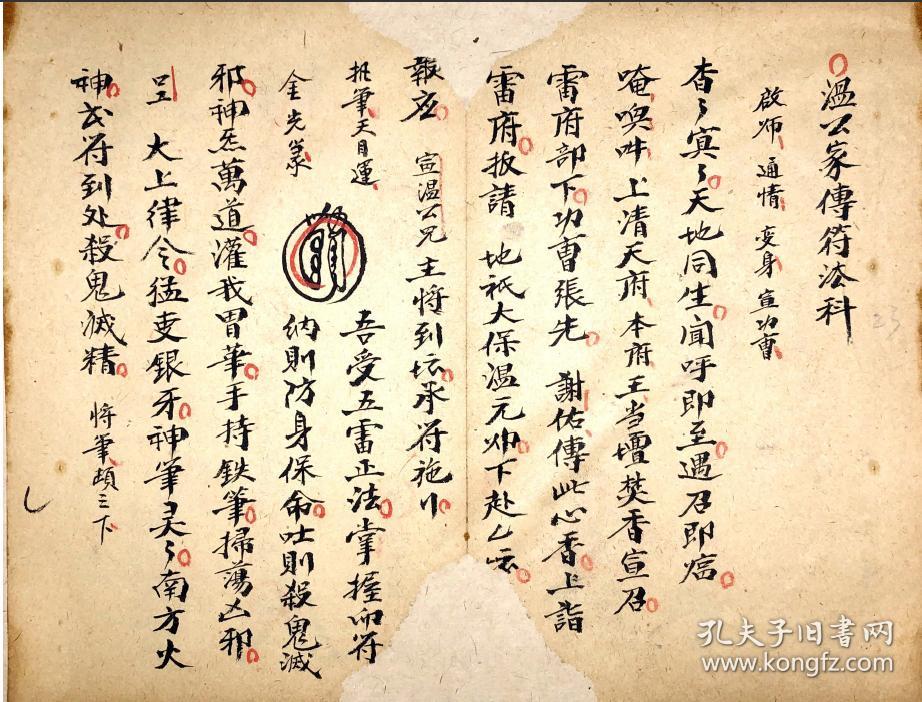 溫公家傳符法科
啟师 通情 变身 宣功曹
杳々冥々天地同生闻呼即至遇召即临
唵吽吽上清天府本府王当壇焚香宣召
雷府部下功曹張先 謝佑傳此心香上詣
雷府扳請 地祇大保溫元帅下赴乙宏
報应 宣溫公兄主将到坛承符施行
抵筆天目運
金光篆
吾受五雷正法掌握雨符
納則防身保命吐則殺鬼滅
邪神炁萬道灌我胃華手持鉄筆掃蕩凶邪
大上律令猛吏銀牙神筆灵々南方火
神玄符到处殺鬼滅精 将筆頓三下
23
孔夫子旧书网
www.kongfz.com